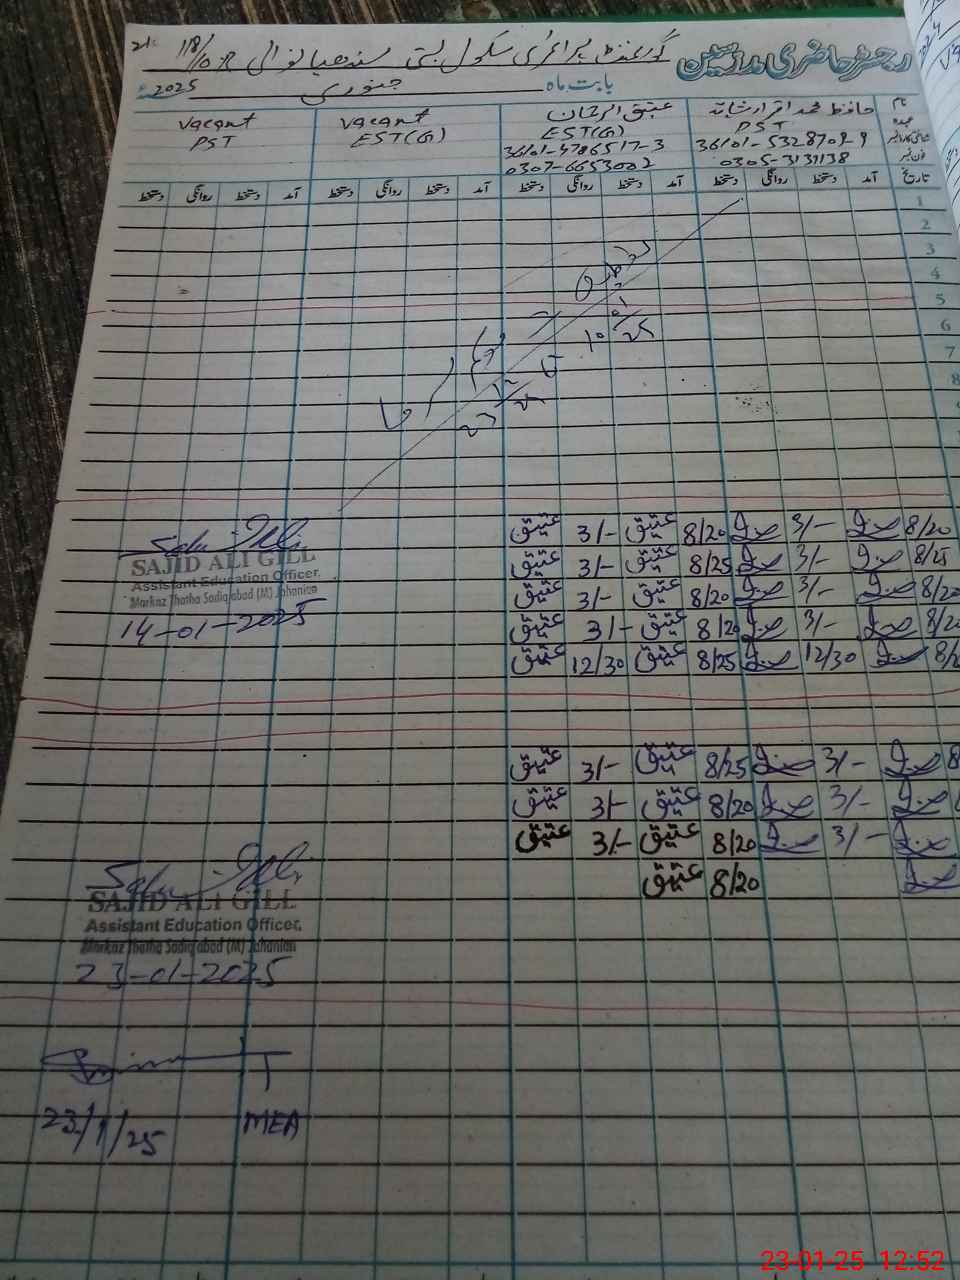 رجسٹر حاضری مدرسین گورنمنٹ پرائمری سکول بستی سندھیانوالی 118/10-R
بابت ماہ جنوری 2025ء
نام حافظ محمد عتیق الرحمان Vacant Vacant
عہدہ PST EST(G) EST(G) PST
شناختی کارڈ نمبر 36101-5328709-9 36101-4786517-3
فون نمبر 0305-3131138 0307-6653002
تاریخ آمد دستخط روانگی دستخط آمد دستخط روانگی دستخط آمد دستخط روانگی دستخط آمد دستخط روانگی دستخط
1
2
3
4
5
6
7
8
10/01/25
23/12/24
8/20 3/- 8/20 عتیق 3/- عتیق
8/25 3/- 8/25 عتیق 3/- عتیق
8/20 3/- 8/20 عتیق 3/- عتیق
8/20 3/- 8/20 عتیق 3/- عتیق
12/30 8/25 عتیق 12/30 عتیق
SAJID ALI GILL
Assistant Education Officer,
Markaz Thatha Sadiqabad (M) Jahanian
14-01-2025
3/- 8/25 عتیق 3/- عتیق
3/- 8/20 عتیق 3/- عتیق
3/- 8/20 عتیق 3/- عتیق
8/20 عتیق
SAJID ALI GILL
Assistant Education Officer,
Markaz Thatha Sadiqabad (M) Jahanian
23-01-2025
23/1/25 MEA
23-01-25 12:52